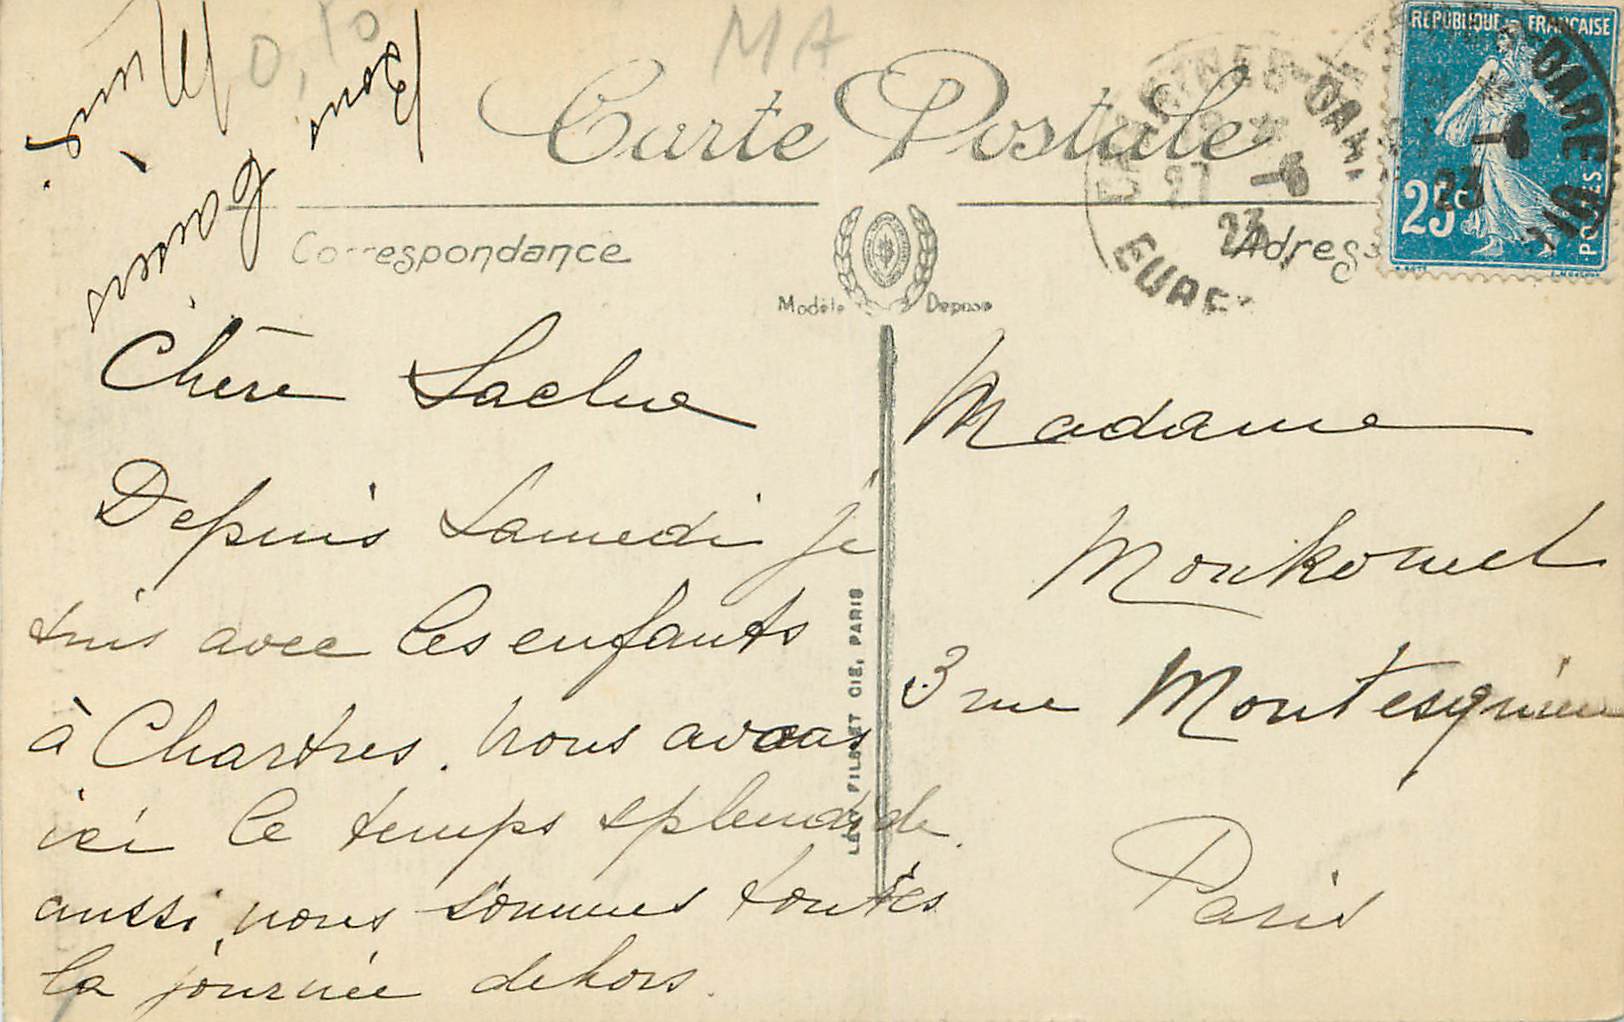 0,10
MA
Carte Postale
Correspondance
Adress
Modèle Déposé
RÉPUBLIQUE FRANÇAISE
25c
POSTES
CHARTRES GARE
27
23
EURE
GARE
23
LÉVY FILS ET CIE, PARIS
Chère
Depuis Samedi je
suis avec les enfants
à Chartres. Nous avons
ici le temps splendide.
aussi nous sommes toutes
la journée dehors.
Bons
baisers
Madame
3 rue Montesquieu
Paris